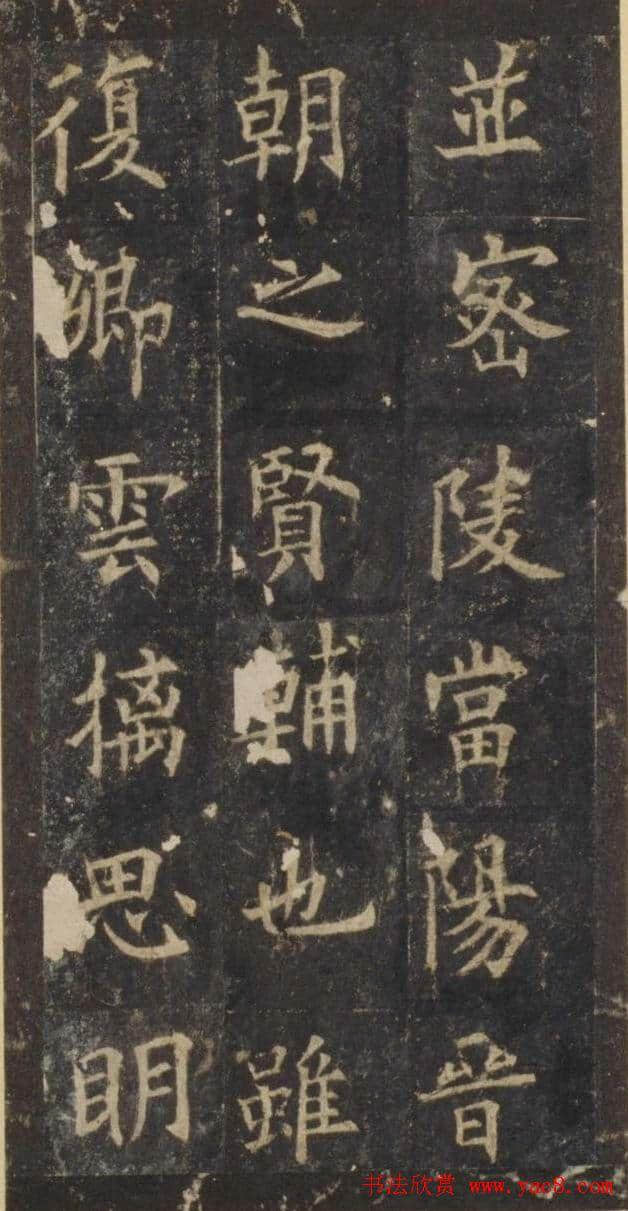 並密陵當陽晉
朝之賢輔也雖
復卿雲摛思明
书法欣赏 www.yac8.com